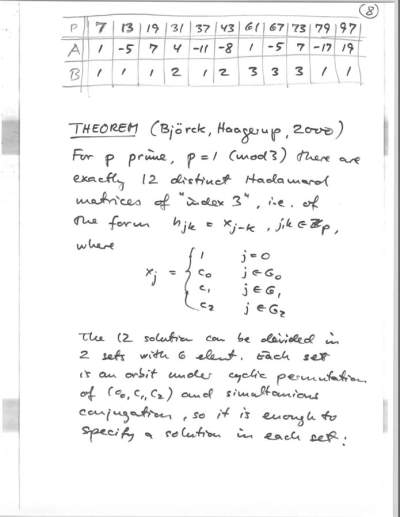 8
P 7 13 19 31 37 43 61 67 73 79 97
A 1 -5 7 4 -11 -8 1 -5 7 -17 19
B 1 1 1 2 1 2 3 3 3 1 1
THEOREM (Björck, Haagerup, 2000)
For p prime, p = 1 (mod 3) there are
exactly 12 distinct Hadamard
matrices of "index 3", i.e. of
the form h_jk = x_j-k, j,k ∈ ℤ_p,
where
x_j = { 1 j = 0
c_0 j ∈ G_0
c_1 j ∈ G_1
c_2 j ∈ G_2
The 12 solution can be devided in
2 sets with 6 elent. Each set
is an orbit under cyclic permutation
of (c_0, c_1, c_2) and simultanious
conjugation, so it is enough to
specify a solution in each set: